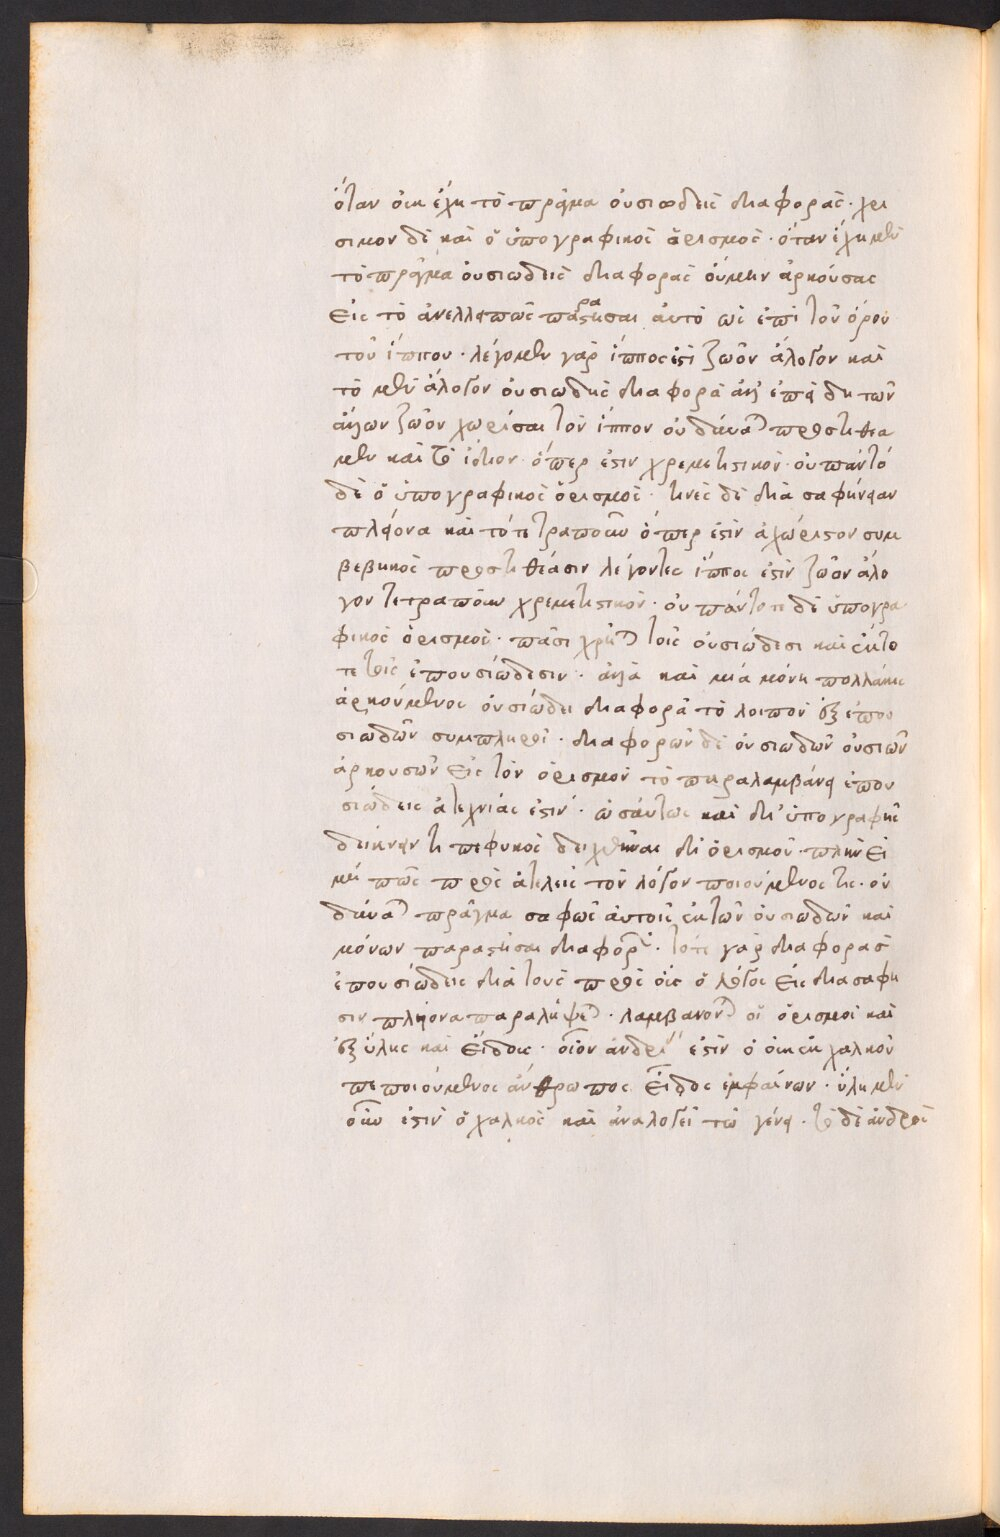 ὅταν οὐκ ἔχη τὸ πρᾶγμα οὐσιωδεῖς διαφοράς· χρι
σιμον δὲ καὶ ὁ ὑπογραφικὸς ὁρισμός· ὅταν ἔχη μὲν
τὸ πρᾶγμα οὐσιωδεῖς διαφορὰς οὐμὴν ἀρκούσας
εἰς τὸ ἀνελλειπῶς παραστῆσαι αὐτὸ ὡς ἐπὶ τοῦ ὅρου
τοῦ ἵππου· λέγομεν γὰρ ἵππος ἐστὶ ζῶον ἄλογον καὶ
τὸ μὲν ἄλογον οὐσιωδὴς διαφορὰ ἀλλ' ἐπεὶ δὴ τῶν
ἄλλων ζῶον χωρίσαι τὸν ἵππον οὐ δύναται προστιθέα
μεν καὶ τὸ ἴδιον ὅπερ ἐστὶν χρεμετιστικόν· οὐ πάντό
δὲ ὁ ὑπογραφικὸς ὁρισμός· τινὲς δὲ διὰ σαφήνειαν
πλείονα καὶ τότε τράπουν ὅπερ ἐστὶν ἀχώριστον συμ
βεβηκὸς προστιθέασιν λέγοντες ἵππος ἐστὶν ζῶον ἄλο
γον τετράπουν χρεμετιστικόν· οὐ πάντοτε δὲ ὑπογρα
φικὸς ὁρισμός· πᾶσι χρῆται τοῖς οὐσιώδεσι καὶ
τε τοῖς ἐπουσιώδεσιν· ἀλλὰ καὶ μιᾶ μόνη πολλάκις
ἀρκούμενος οὐσιώδει διαφορᾶ τὸ λοιπὸν ἐξ ἐπου
σιωδῶν συμπληροῖ· διαφορῶν δὲ οὐσιωδῶν οὐσιῶν
ἀρκουσῶν εἰς τὸν ὁρισμὸν τὸ παραλαμβάνει ἐπου
σιώδεις ἀτεχνίας ἐστίν· ὡσαύτως καὶ δι' ὑπογραφῆς
δεικνύειν τι πεφυκὸς δειχθῆναι δι' ὁρισμοῦ· πλὴν εἰ
μή πως πρὸς ἀτελεῖς τὸν λόγον ποιούμενός τις· οὐ
δύναται πρᾶγμα σαφῶς αὐτοῖς ἐκ τῶν οὐσιωδῶν καὶ
μόνων παραστῆσαι διαφορῶν· τότε γὰρ διαφορὰς
ἐπουσιώδεις διὰ τοὺς πρὸς οὓς ὁ λόγος εἰς διασαφη
σιν πλήονα παραλήψεται· λαμβάνονται οἱ ὁρισμοὶ καὶ
ἐξ ὕλης καὶ εἴδους· οἷον ἀνδριὰς ἐστὶν ὁ οἰκ ἐκ χαλκοῦ
πεποιούμενος ἀνθρώπος εἶδος ἐμφαίνων· ὕλη μὲν
οὖν ἐστὶν ὁ χαλκὸς καὶ ἀναλογεῖ τῶ γένει· τὸ δὲ ἀνδρὸς